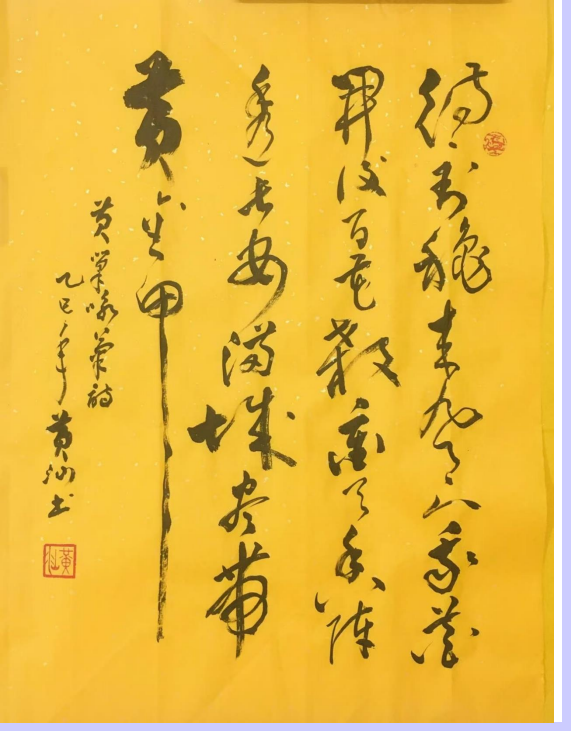 待到穐来九月八我花
開后百花殺衝天香阵
透长安满城尽带
黄金甲
黄巢咏菊诗
乙巳年黄汕书
黃汕